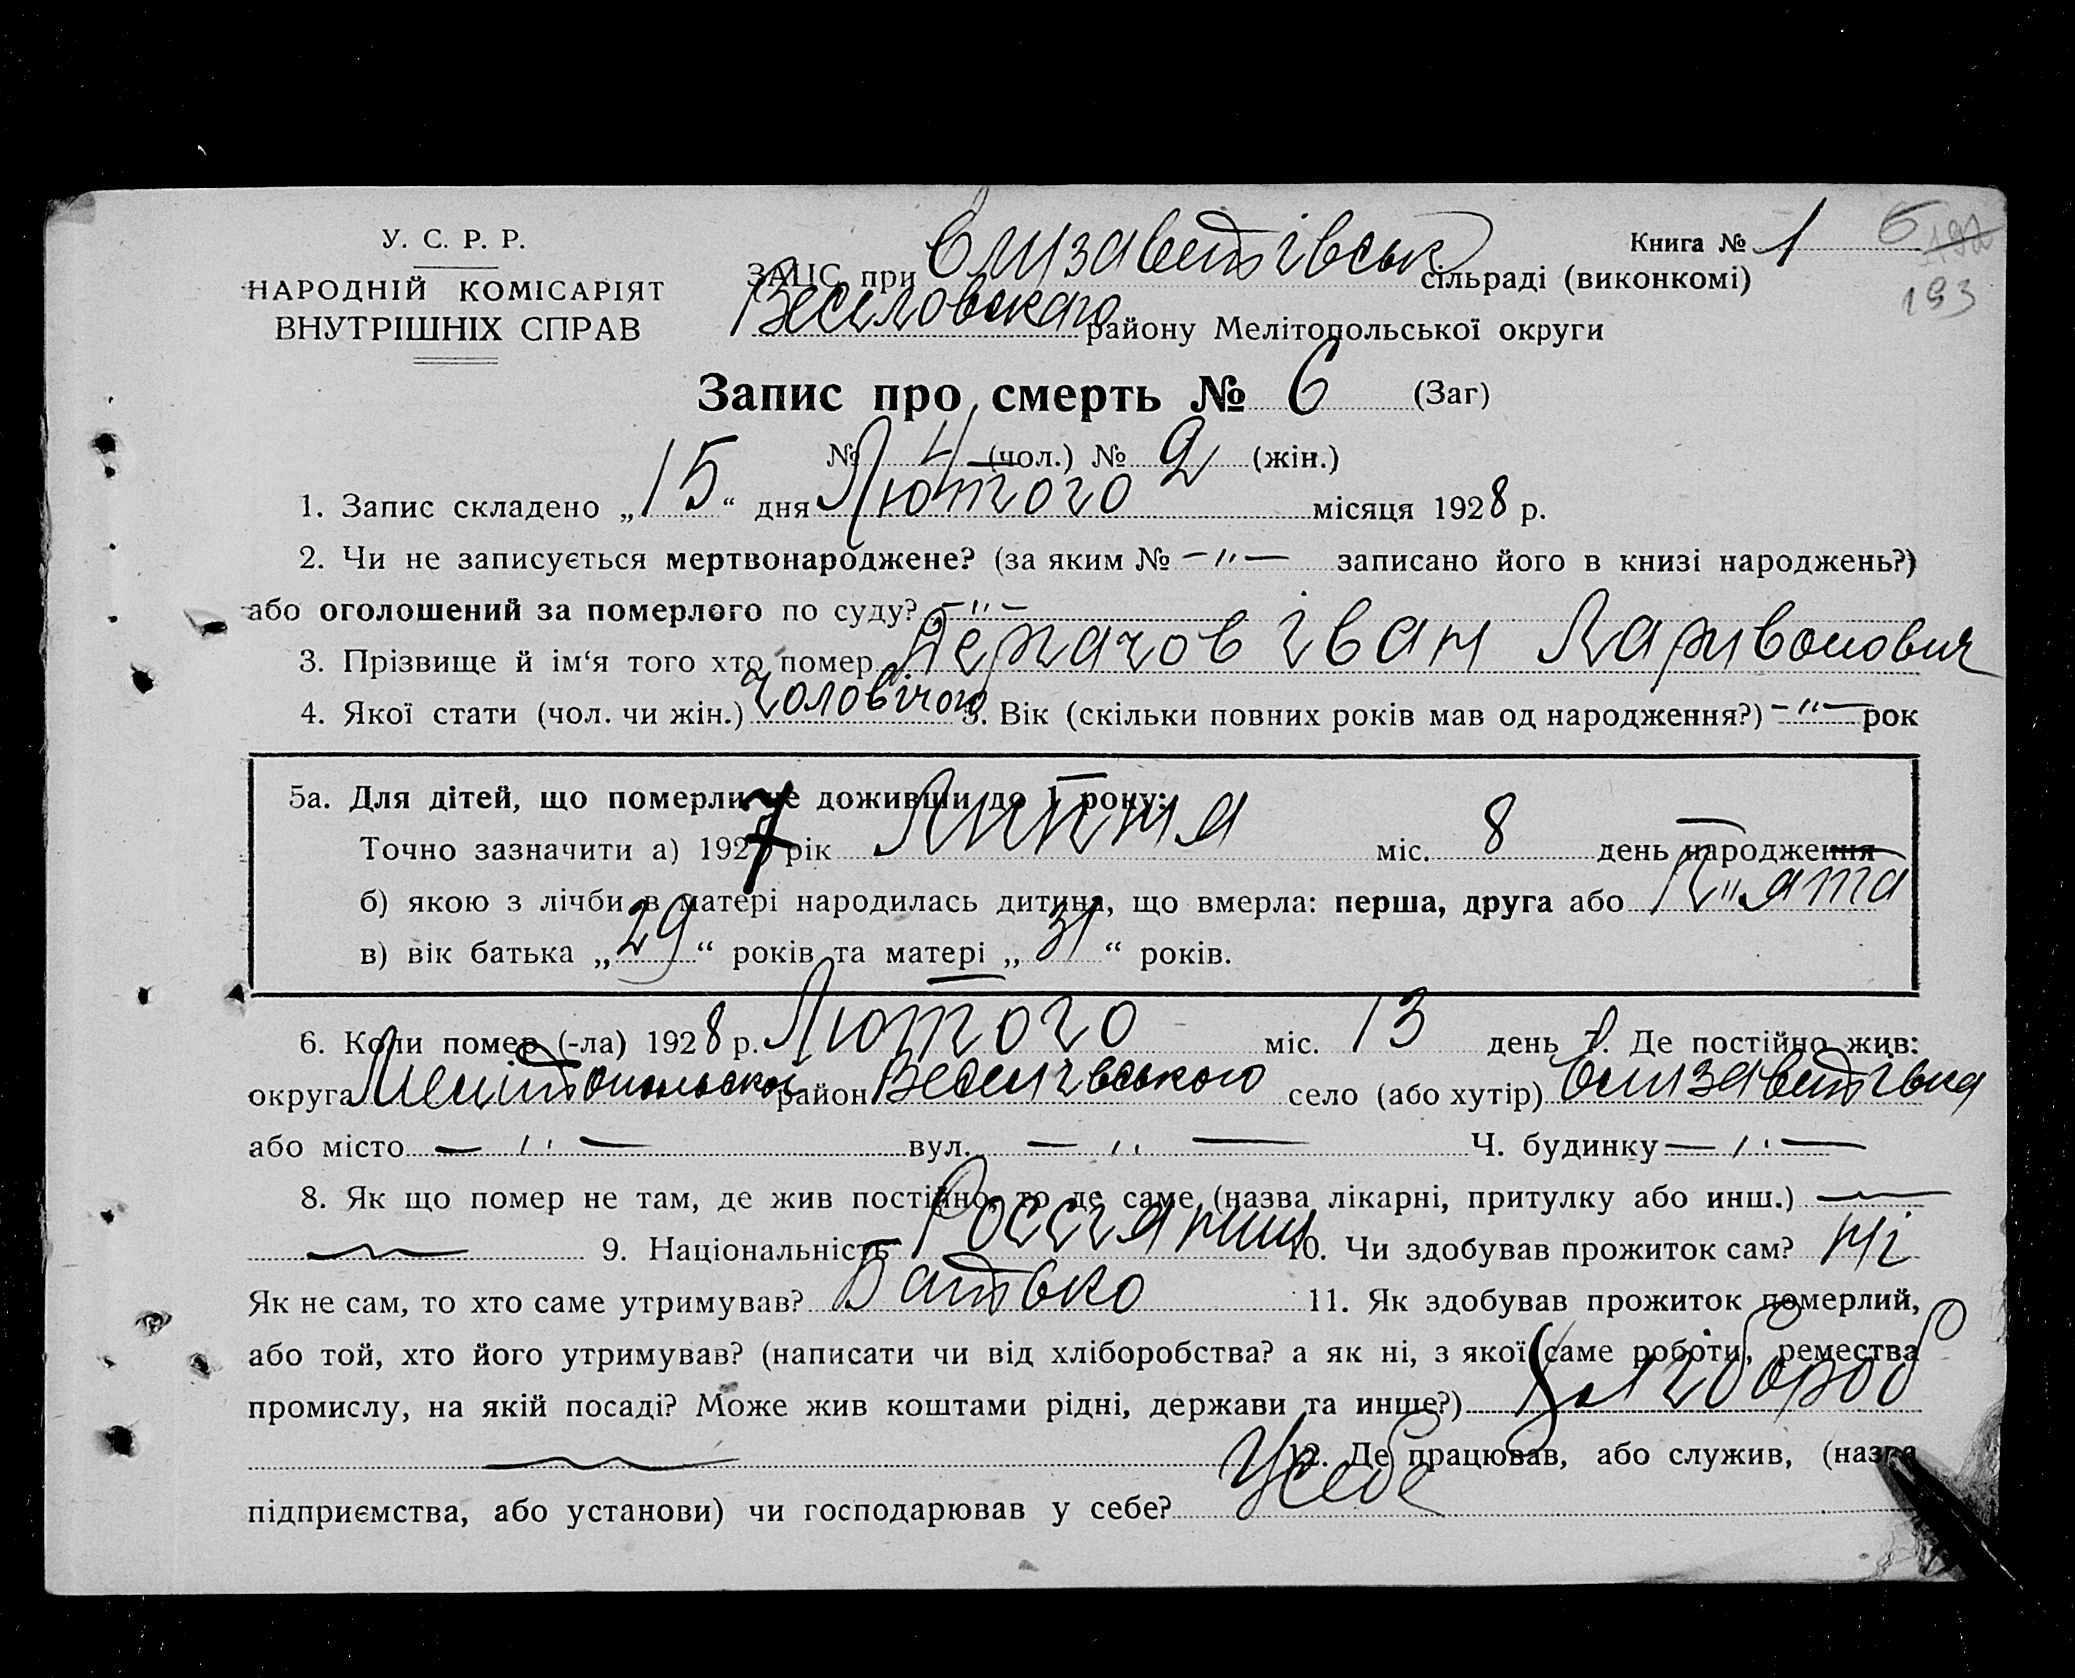 У. С. Р. Р.
НАРОДНІЙ КОМІСАРІЯТ
ВНУТРІШНІХ СПРАВ
Книга № 1
6
192
193
ЗАПІС при Єлизаветівськ сільраді (виконкомі)
Веселовского району Мелітопольської округи
Запис про смерть № 6 (Заг)
№ 4 (чол.) № 2 (жін.)
1. Запис складено „15“ дня Лютого місяця 1928 р.
2. Чи не записується мертвонароджене? (за яким № —"— записано його в книзі народжень?)
або оголошений за померлого по суду? —"—
3. Прізвище й ім‘я того хто помер Іван Ларивонович
4. Якої стати (чол. чи жін.) чоловічого 5. Вік (скільки повних років мав од народження?) —"— рок
5а. Для дітей, що померли не доживши до 1 року:
Точно зазначити а) 1927 рік Липня міс. 8 день народження
б) якою з лічби в матері народилась дитина, що вмерла: перша, друга або П"ята
в) вік батька „29“ років та матері „31“ років.
6. Коли помер (-ла) 1928 р. Лютого міс. 13 день 7. Де постійно жив:
округа Мелітопольської район Веселівського село (або хутір) Єлизаветівка
або місто —"— вул. —"— Ч. будинку —"—
8. Як що помер не там, де жив постійно, то де саме (назва лікарні, притулку або инш.) —
— 9. Національність Россіянин 10. Чи здобував прожиток сам? ні
Як не сам, то хто саме утримував? Батько 11. Як здобував прожиток померлий,
або той, хто його утримував? (написати чи від хліборобства? а як ні, з якої саме роботи, ремества
промислу, на якій посаді? Може жив коштами рідні, держави та инше?) Хлібороб
— 12. Де працював, або служив, (назва
підприємства, або установи) чи господарював у себе? У себе